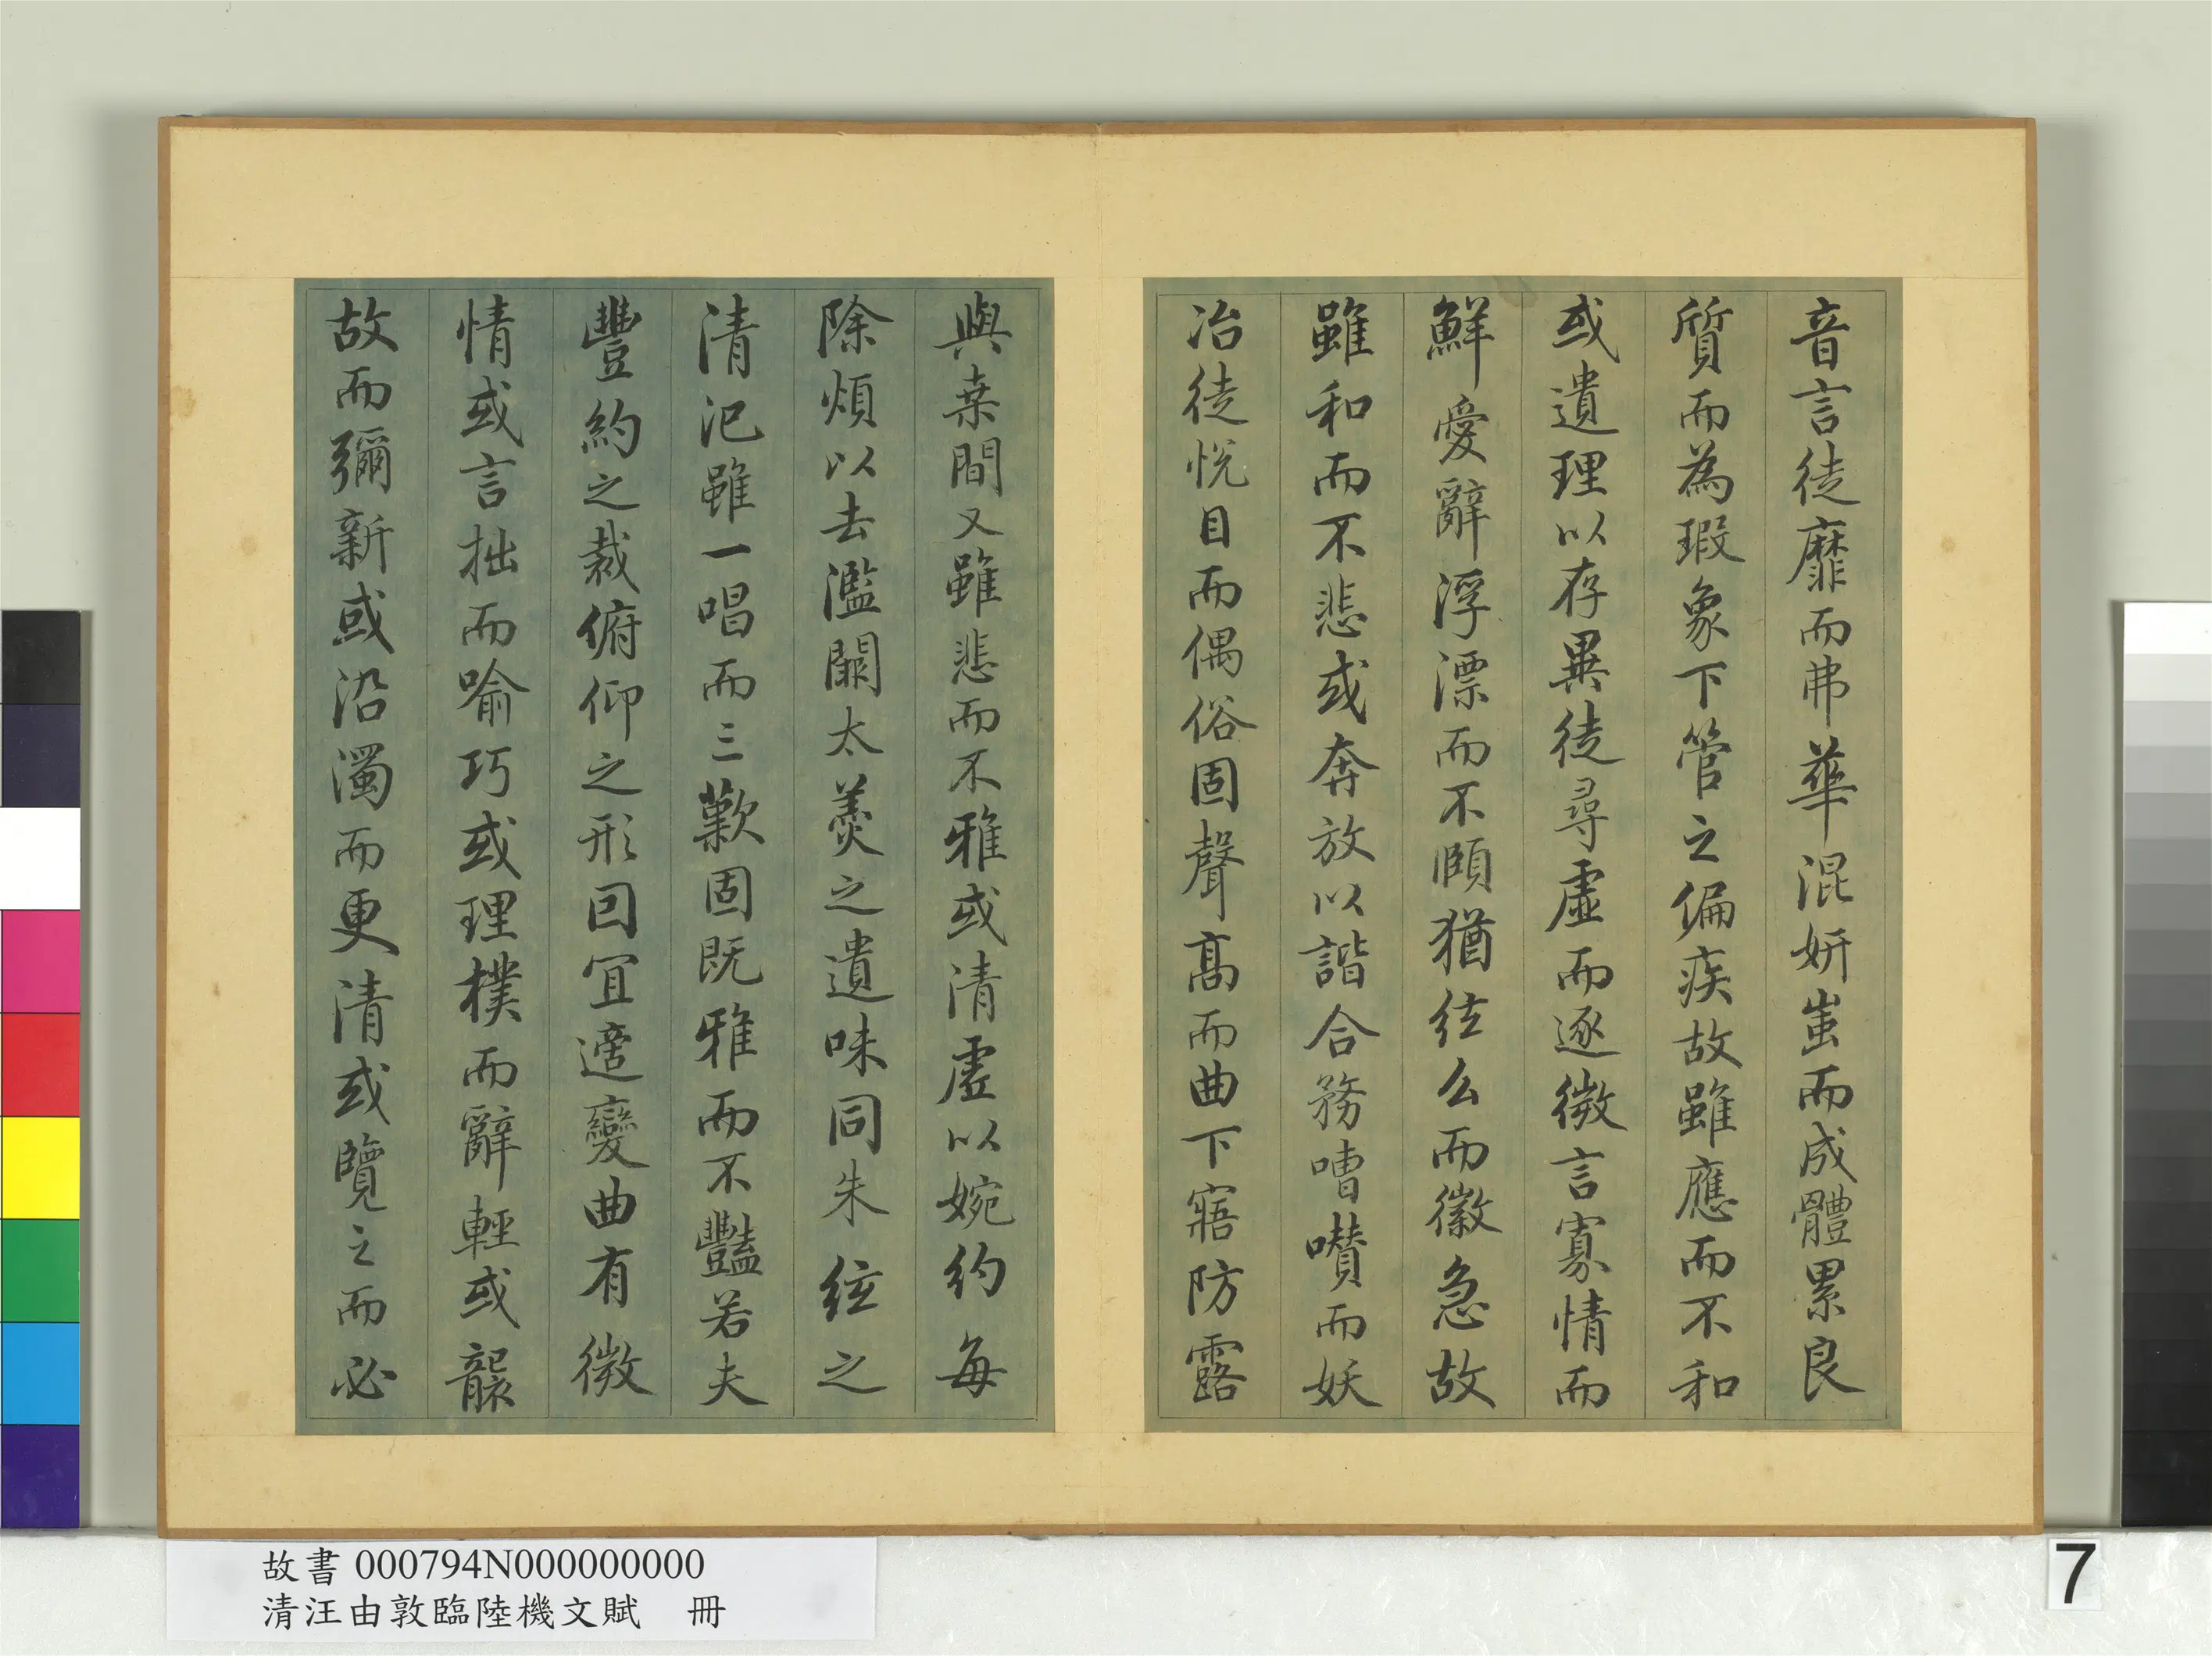 音言徒靡而弗華混妍蚩而成體累良
質而為瑕象下管之偏疾故雖應而不和
或遺理以存異徒尋虛而逐微言寡情而
鮮愛辭浮漂而不歸猶絃么而徽急故
雖和而不悲或奔放以諧合務嘈囋而妖
冶徒悅目而偶俗固聲高而曲下寤防露
與桑間又雖悲而不雅或清虛以婉約每
除煩以去濫闕太羹之遺味同朱絃之
清汜雖一唱而三歎固既雅而不豔若夫
豐約之裁俯仰之形回宜適變曲有微
情或言拙而喻巧或理樸而辭輕或襲
故而彌新或沿濁而更清或覽之而必
故書 000794N000000000
清汪由敦臨陸機文賦 冊
7